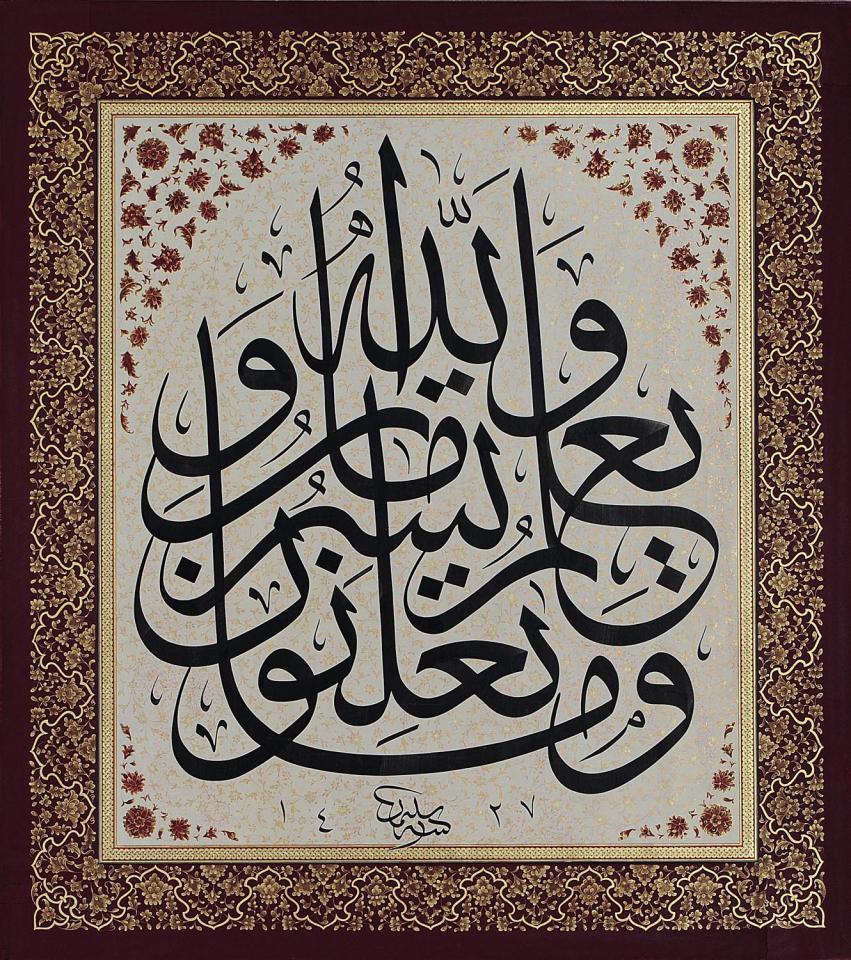 والله يعلم ما تسرون وما تعلنون
١٤٢٧